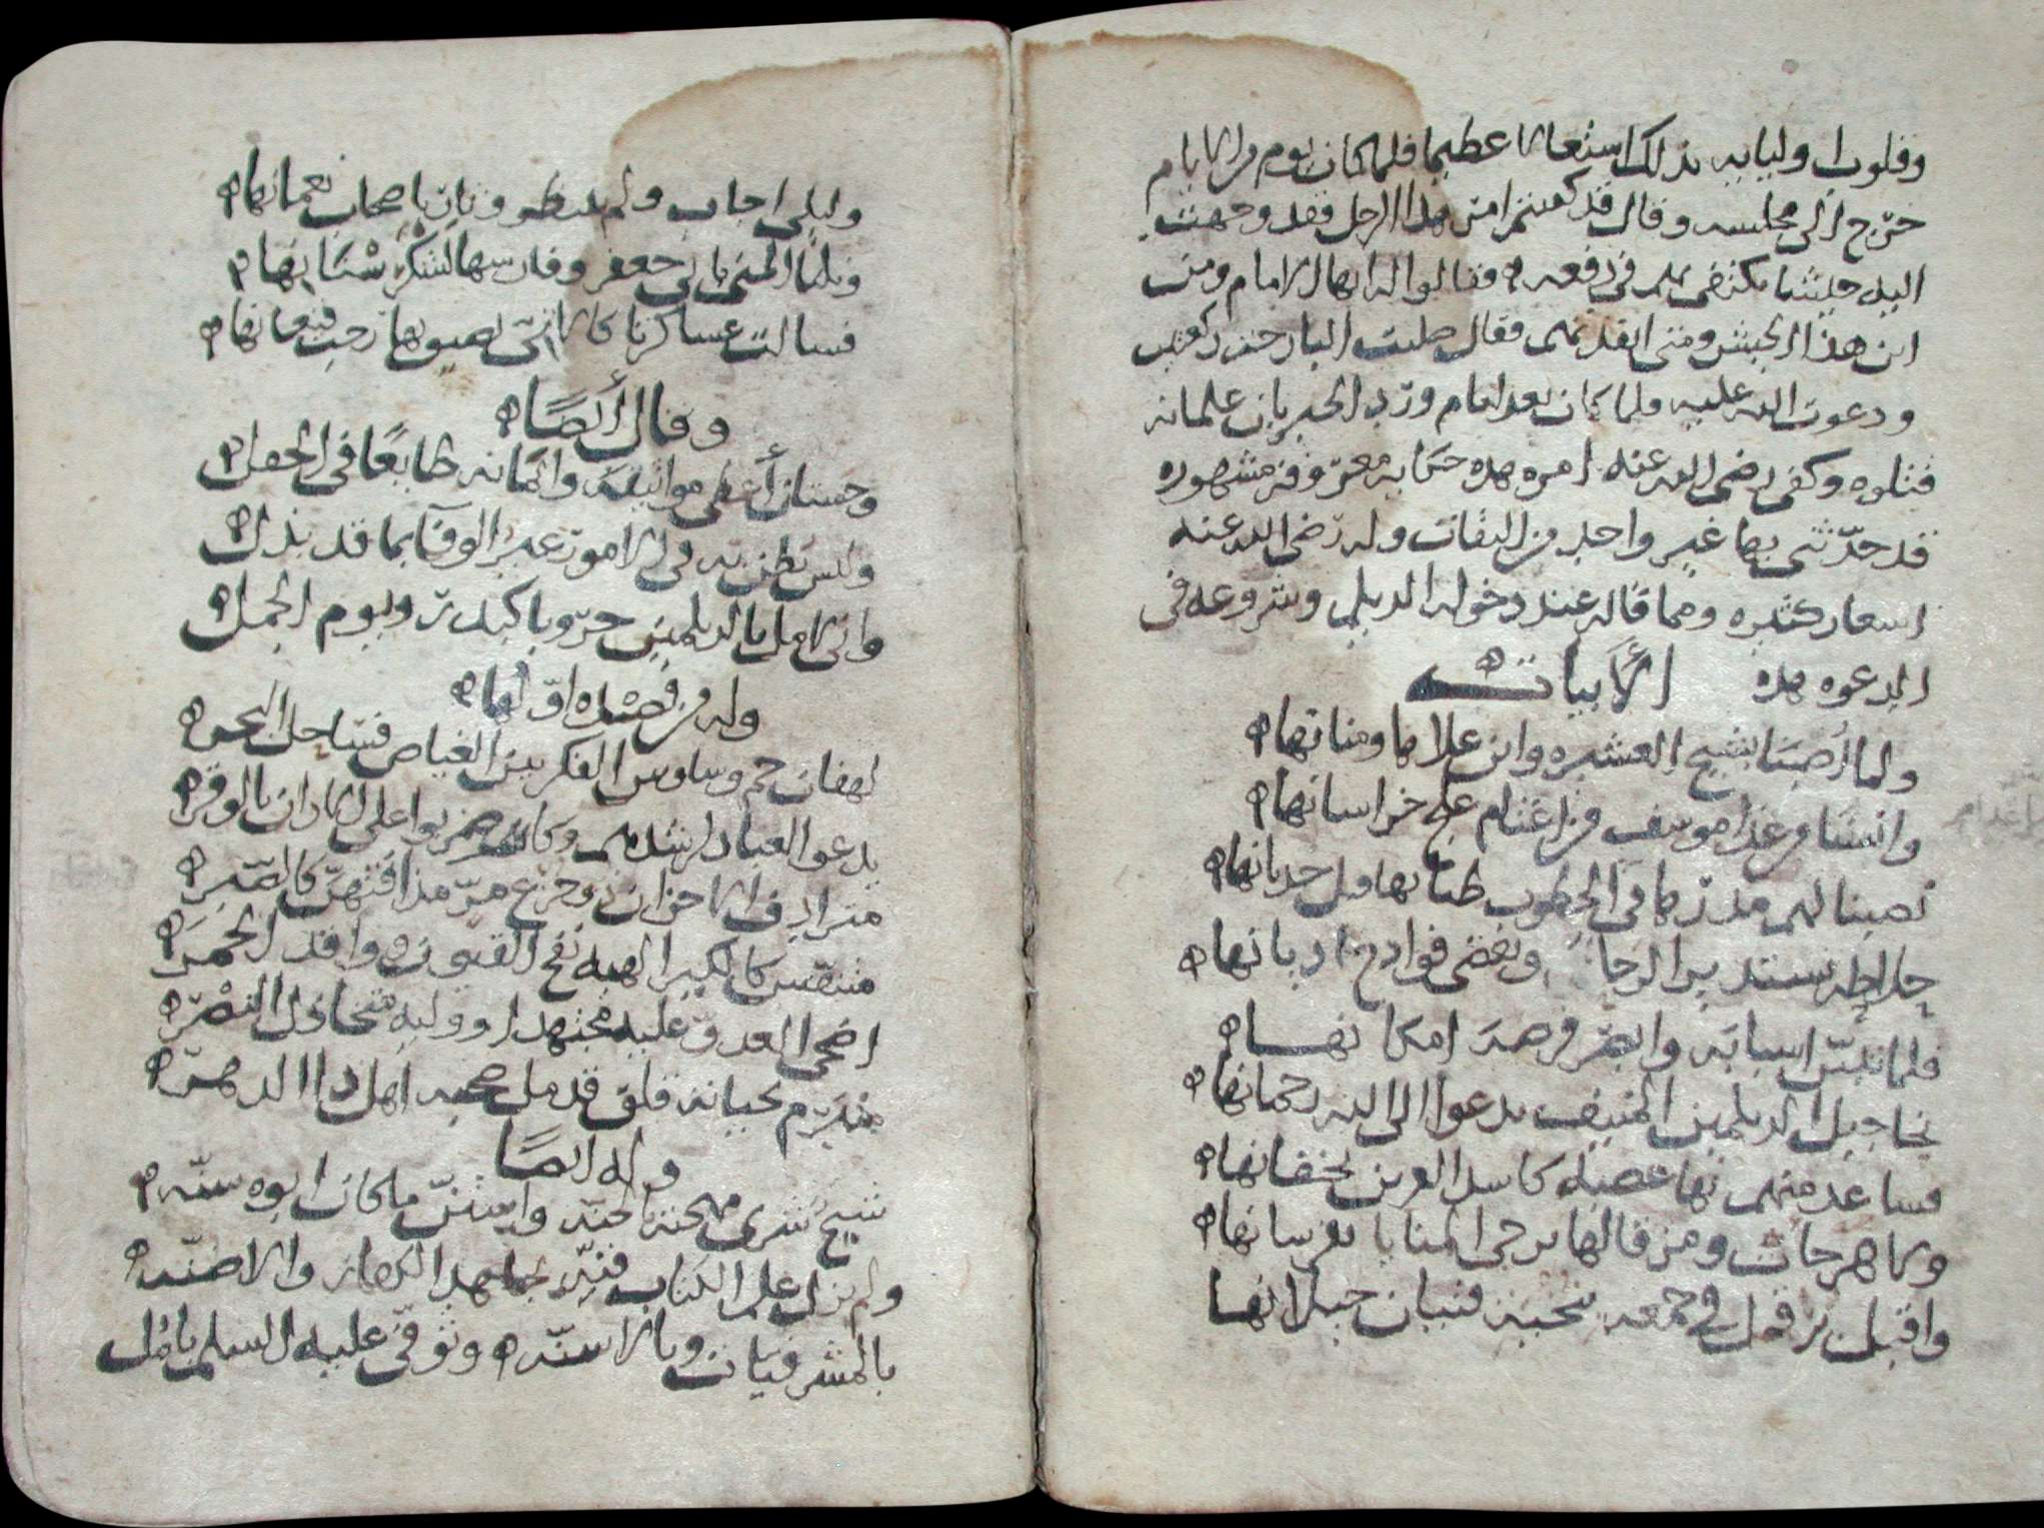 وقلوب اوليايه بذلك اشتغالا عظيما فلما كان يوم من الايام
خرج الى مجلسه وقال قد كفيتم امر هذا الرجل فقد وجهت
اليه جيشا يكتفى بهم في دفعه فقالوا له ايها الامام ومن
اين هذا الجيش ومتى انفذتهم فقال صليت البارحة ركعتين
ودعوت الله عليه فلما كان بعد ايام ورد الخبر بان غلمانه
قتلوه وكفى رضى الله عنه امره هذه حكاية معروفة مشهوره
قد حدثنى بها غير واحد من الثقات وله رضى الله عنه
اشعار كثيره ومما قاله عند دخوله الديلم وشروعه في
الدعوه هذه الابيات
ولما اصبنا بشيخ العشيره وابن علاها ومنانها
وانسنا من عدا موسف من اغتنام على خراسانها
نصبنا لهم مدرها في الخطوب طبا بها قبل حدثانها
جلالته تستدير الرحا ويغضى فوادح اديانها
فلما تبين اسبابه وابصر فرصة امكانها
نحا جبل الديلمين المنيف يدعوا الى الله رحمانها
فساعد منهم بها عصبة كاسد العرين بخفانها
وماهرجات ومن قالها يرجى المنايا بفرسانها
واقبل يرقل في جمعه بنخبة فتيان جيلانها
وليلى اجاب ولم ينتظر وثاب باصحاب نعمانها
ونلنا المنى بابى جعفر وفارسها ليشكر ستانها
فسالت عساكرنا كالاتى تضيق بها رحب قيعانها
وقال ايضا
وحستان اعطى مواثيقه وايمانه طايعا في الحفل
وليس يظن به في الامور غير الوفا بما قد بذل
وانى لامل بالديلمين حروبا كبدر ويوم الجمل
وله من قصيده اولها
لهفان جم وساوس الفكر بين الغياض فساحل البحر
يدعو العباد لرشدهم وكان ضربوا على الاذان بالوقر
مترادف الاحزان ذو جزع مر مذاقتهن كالصبر
متنفس كالكير الهبه نفخ القيون وواقد الجمر
اضحى العدو عليه مجتهدا ووليه متخاذل النصر
متبرم بحياته قلق قد مل صحبه اهل ذا الدهر
وله ايضا
شيخ شرى مهجته بالجنه واستن ما كان ابوه سنه
ولم يزل علم الكتاب فنه يجاهد الكفار والاظنه
بالمشرفيات وبالاسنه وتوفى عليه السلم بامل